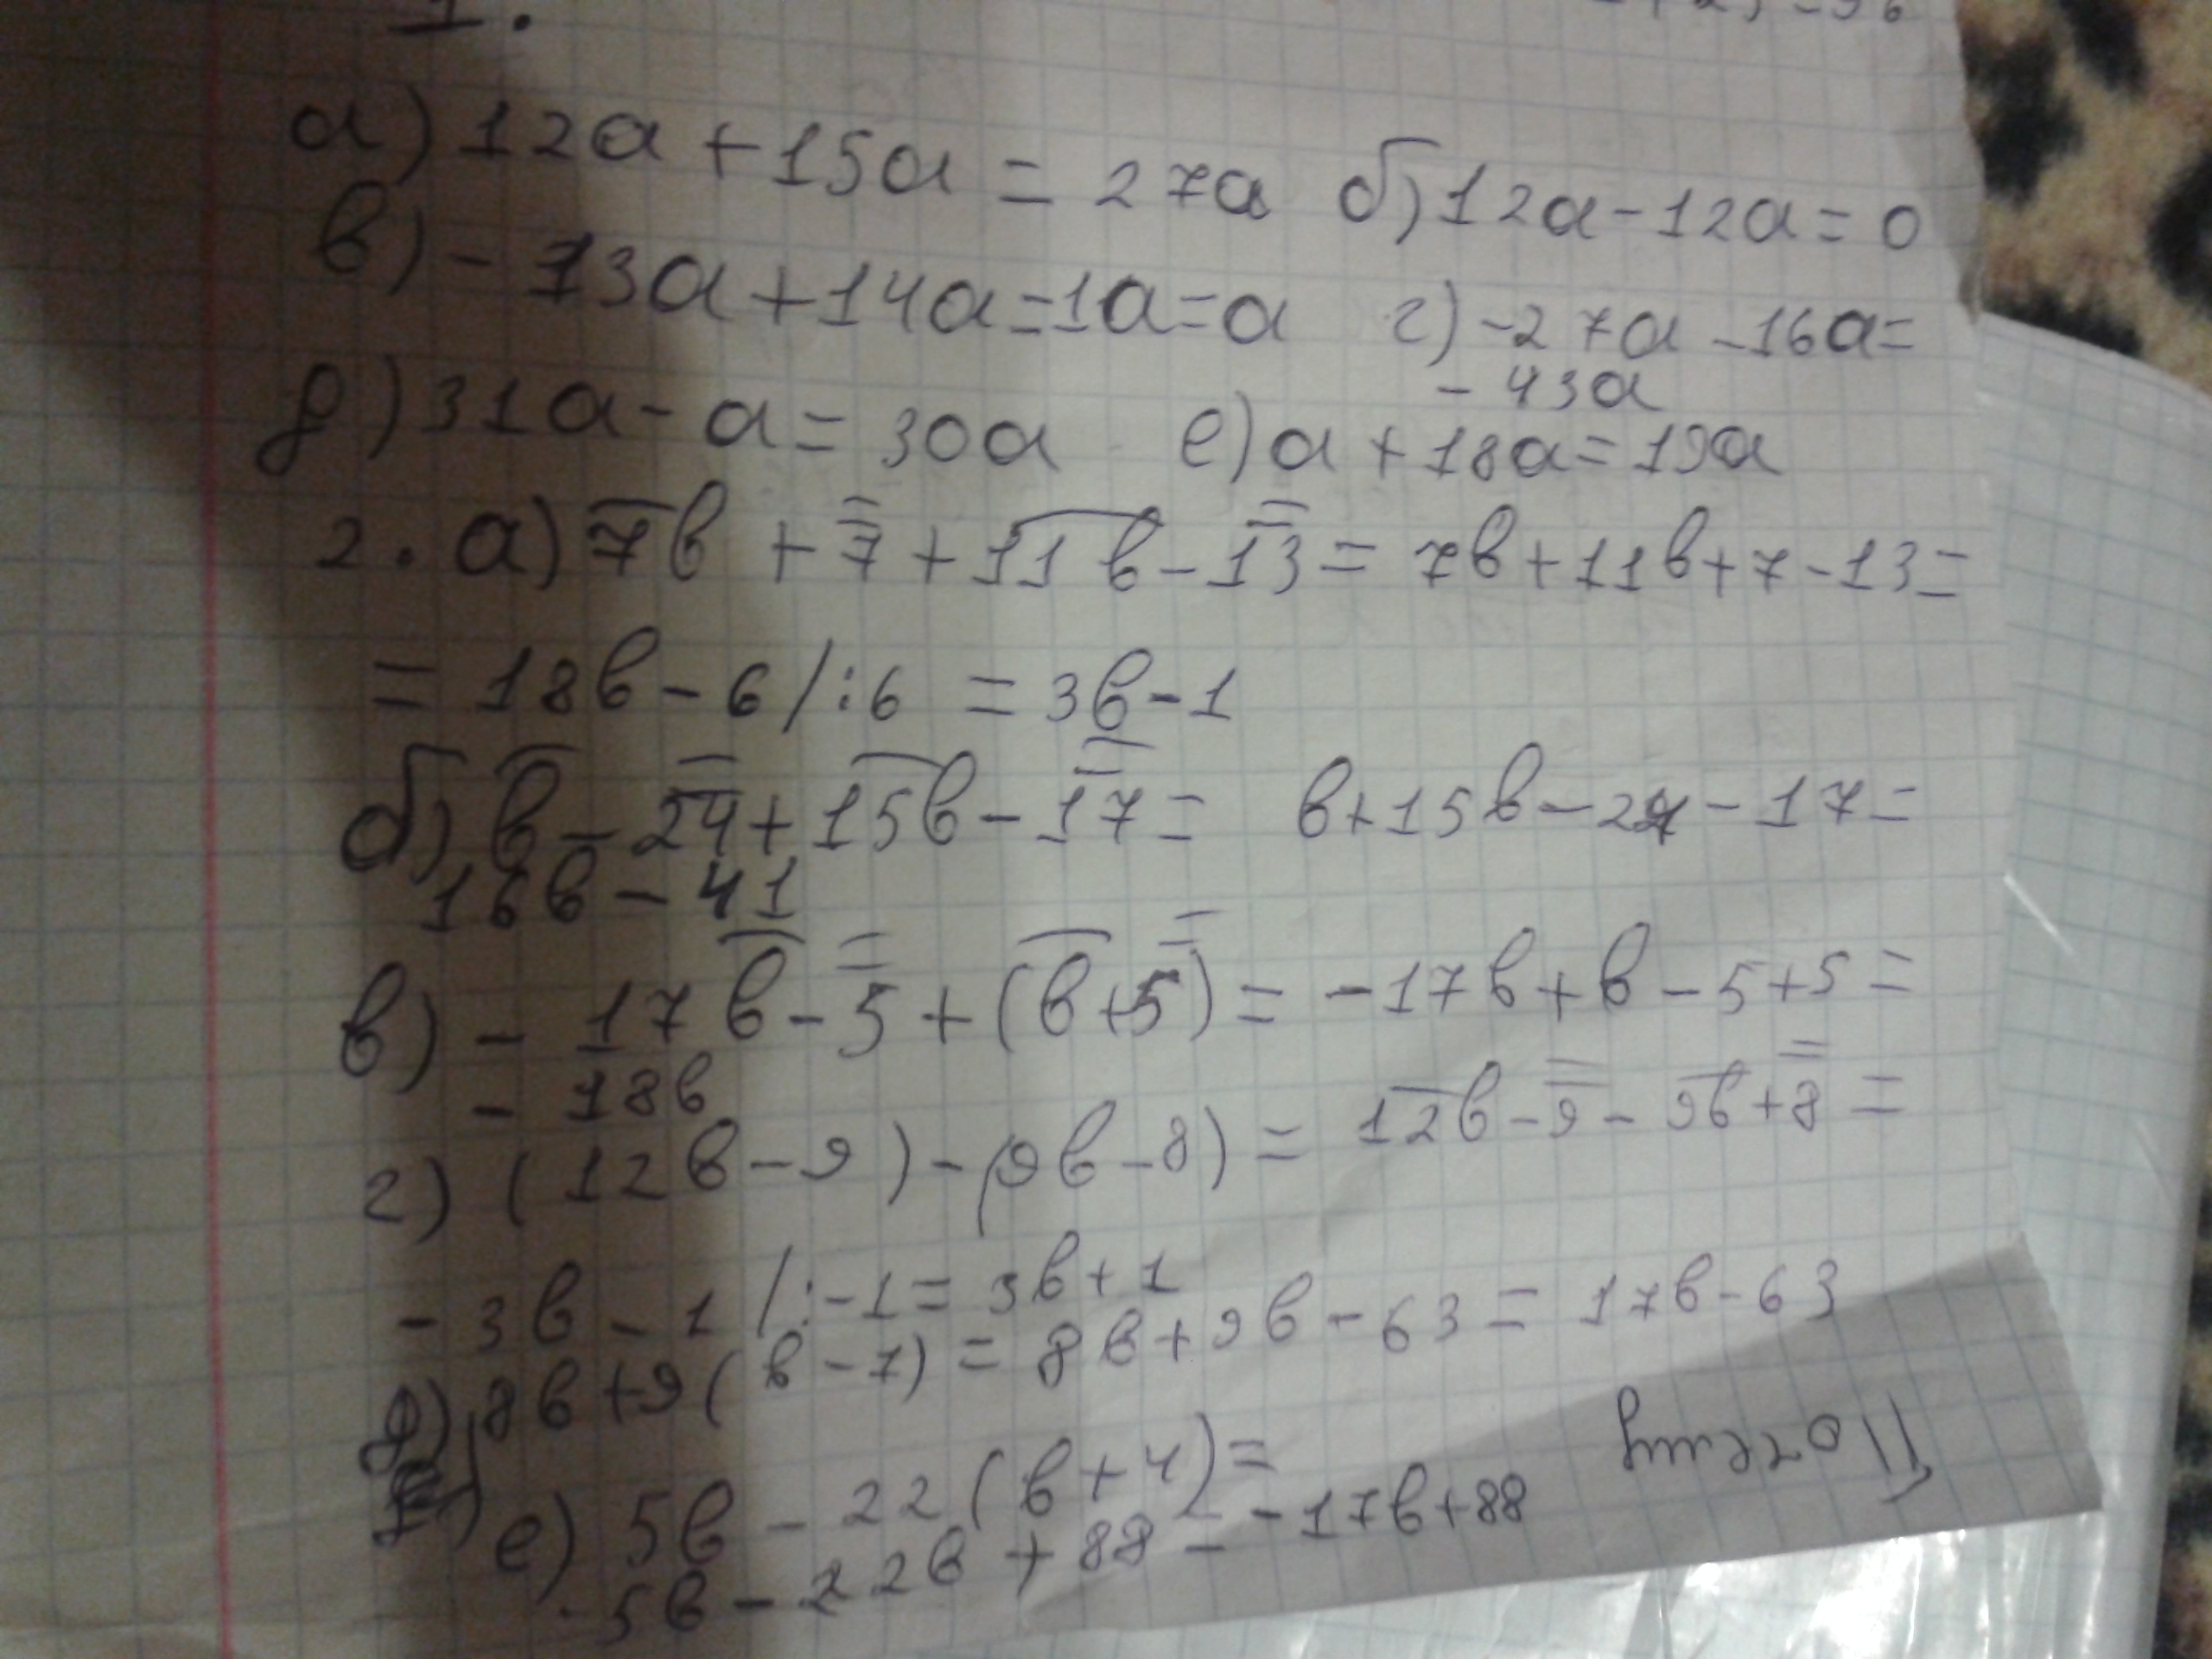 1.
а) 12a + 15a = 27a б) 12a - 12a = 0
в) - 13a + 14a = 1a = a г) -27a - 16a =
- 43a
д) 31a - a = 30a е) a + 18a = 19a
2. а) 7в + 7 + 11в - 13 = 7в + 11в + 7 - 13 =
= 18в - 6 /:6 = 3в - 1
б) в - 24 + 15в - 17 = в + 15в - 24 - 17 =
16в - 41
в) - 17в - 5 + (в + 5) = -17в + в - 5 + 5 =
- 18в
г) (12в - 9) - (9в - 8) = 12в - 9 - 9в + 8 =
- 3в - 1 /: -1 = 3в + 1
д) 8в + 9(в - 7) = 8в + 9в - 63 = 17в - 63
е) 5в - 22(в + 4) =
5в - 22в + 88 = -17в + 88
Почему